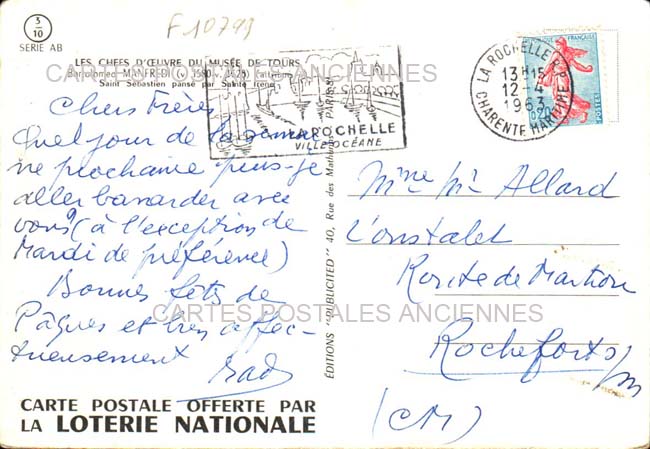 F10799
3
10
SERIE AB
LES CHEFS D'ŒUVRE DU MUSÉE DE TOURS
Bartolomeo MANFREDI
Saint Sébastien pansé par Sainte Irène
CARTES POSTALES ANCIENNES
Chers Frères
Quel jour de la semai-
ne prochaine puis-je
aller bavarder avec
vous? (à l'exception de
Mardi de préférence)
Bonnes fêtes de
Pâques et très affec-
tueusement
CARTES POSTALES ANCIENNES
CARTE POSTALE OFFERTE PAR
LA LOTERIE NATIONALE
ÉDITIONS "PUBLICITED" 40, Rue des Mathurins PARIS
LA ROCHELLE
VILLE OCÉANE
LA ROCHELLE R.P.
13H15
12-4
1963
CHARENTE MARITIME
FRANÇAISE
0,20
POSTES
Mme Mr Allard
L'onstalet
Route de Martrou
Rochefort s/m
(CM)